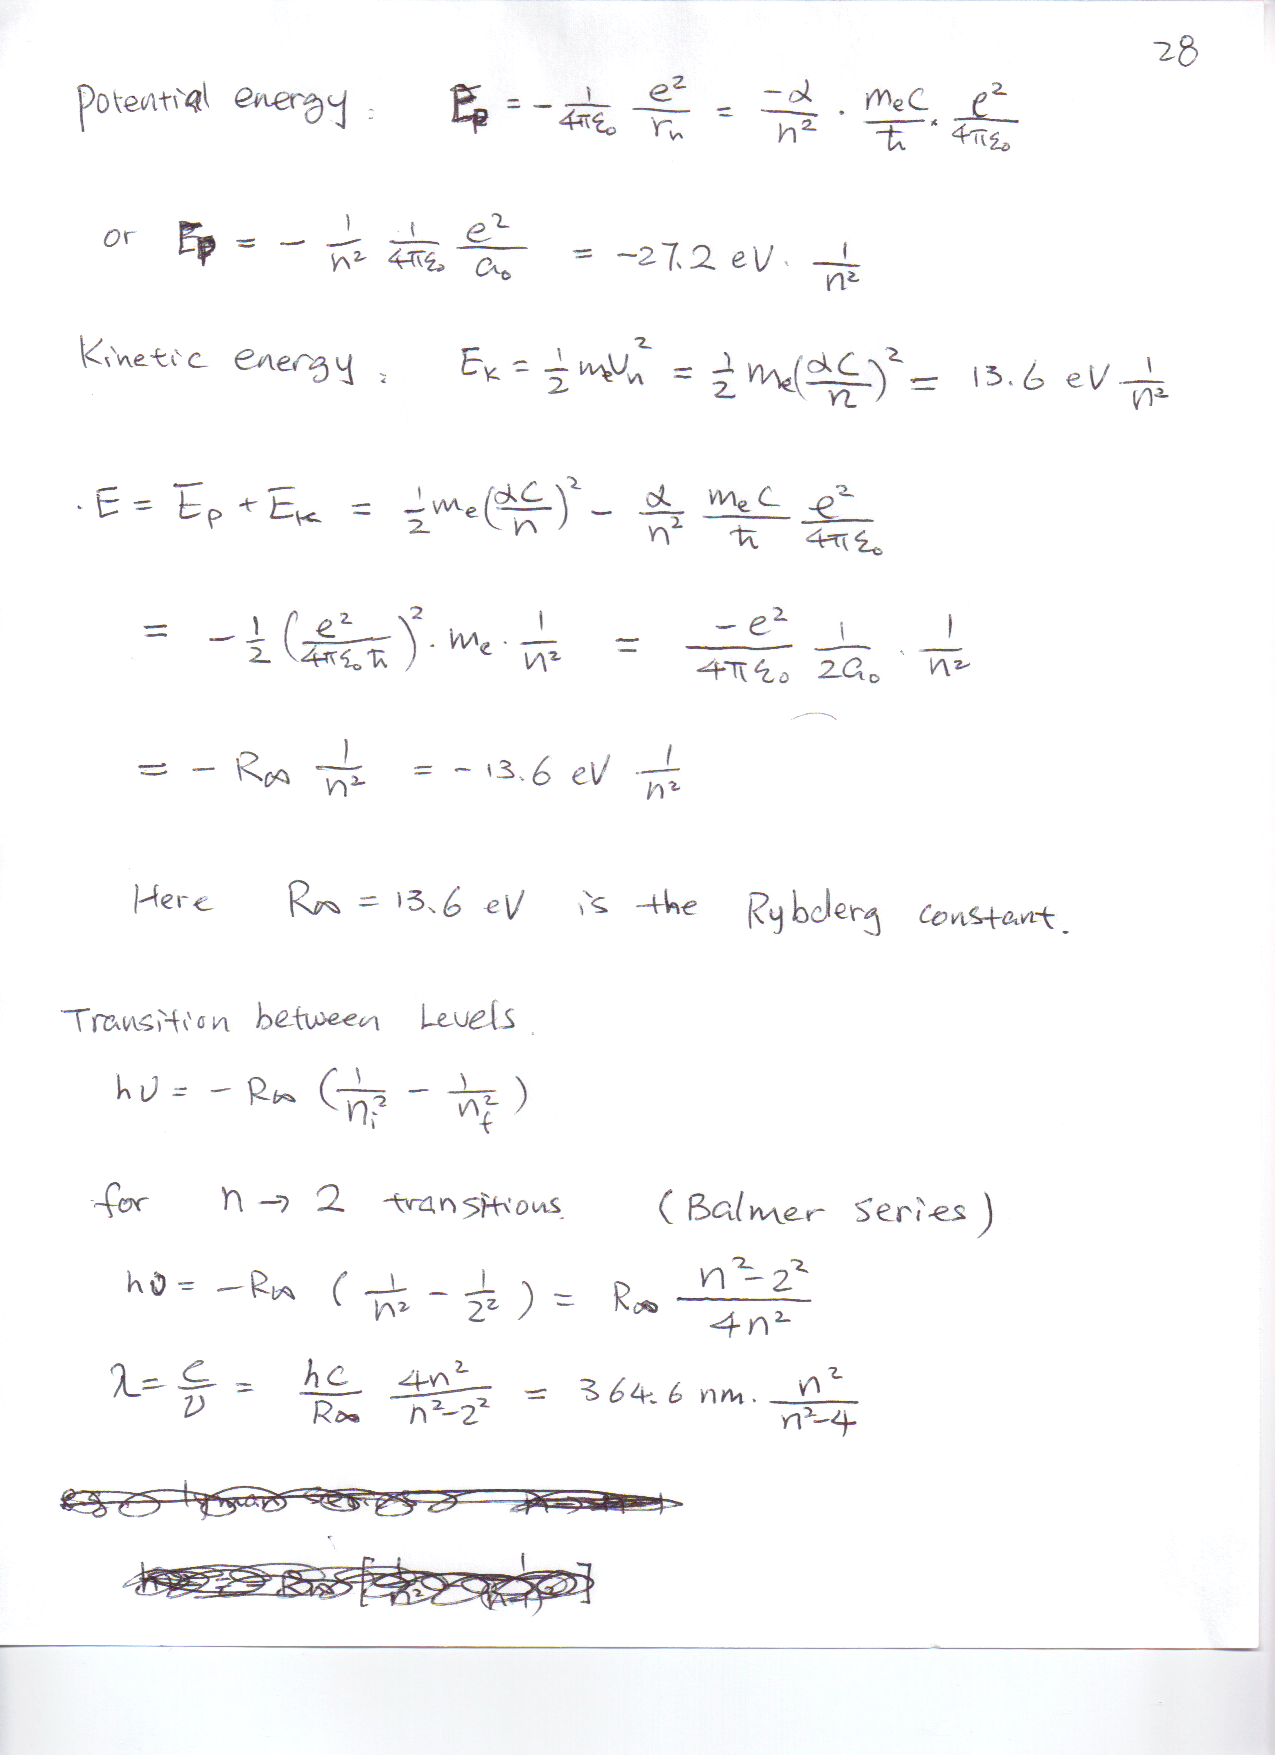 28
Potential energy: E_p = - 1/(4πε₀) e²/r_n = -α/n² · m_e c/ħ · e²/(4πε₀)
or E_p = - 1/n² 1/(4πε₀) e²/a₀ = -27.2 eV · 1/n²
Kinetic energy: E_K = 1/2 m_e v_n² = 1/2 m_e (αc/n)² = 13.6 eV 1/n²
· E = E_p + E_K = 1/2 m_e (αc/n)² - α/n² m_e c/ħ e²/(4πε₀)
= -1/2 (e²/(4πε₀ħ))² · m_e · 1/n² = -e²/(4πε₀) 1/(2a₀) · 1/n²
= - R∞ 1/n² = -13.6 eV 1/n²
Here R∞ = 13.6 eV is the Rybderg constant.
Transition between Levels.
hν = - R∞ (1/n_i² - 1/n_f²)
for n → 2 transitions. (Balmer series)
hν = -R∞ (1/n² - 1/2²) = R∞ (n²-2²)/(4n²)
λ = c/ν = hc/R∞ 4n²/(n²-2²) = 364.6 nm · n²/(n²-4)
eg lyman series